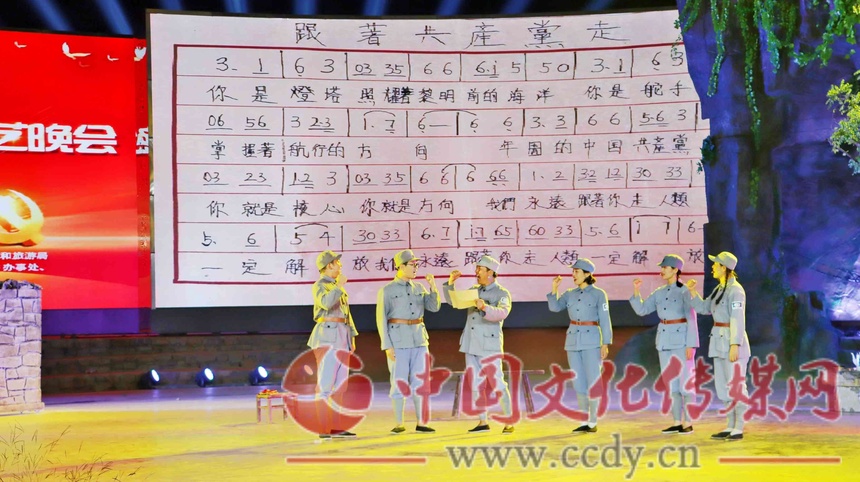 跟著共產黨走
3. 1 | 6 3 | 03 35 | 6 6 | 6.i 5 | 5 0 | 3. 1 | 6
你是燈塔 照耀著黎明前的海洋 你是舵手
06 56 | 3 2.3 | 1. 7 | 6 — | 6 6 | 3. 3 | 6 6 | 5.6 3
掌握著航行的方向 年圄的中国共產黨
03 23 | 1.2 3 | 03 35 | 6 6 | 6 66 | 1. 2 | 32 12 | 30 33
你就是核心 你就是方向 我們永遠跟著你走 人類
5. 6 | 5 4 | 30 33 | 6. 7 | i.7 65 | 60 33 | 5. 6 | i 7 | 6-
一定解放 我们永遠跟著你走 人類一定解放
艺晚会
和旅游局
办事处、
中国文化传媒网
www.ccdy.cn